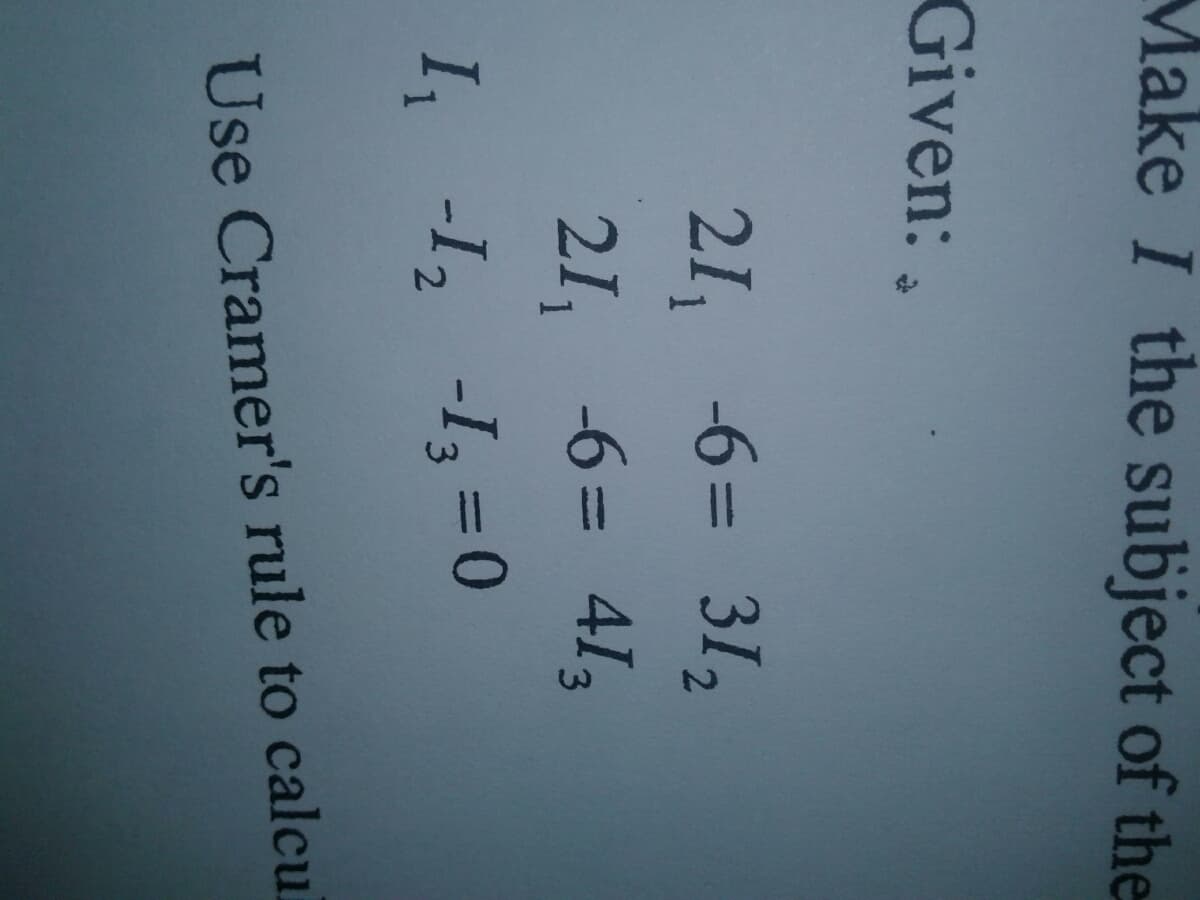 Make I the subject of the
Given:
2I₁ -6 = 3I₂
2I₁ -6 = 4I₃
I₁ -I₂ -I₃ = 0
Use Cramer's rule to calcu